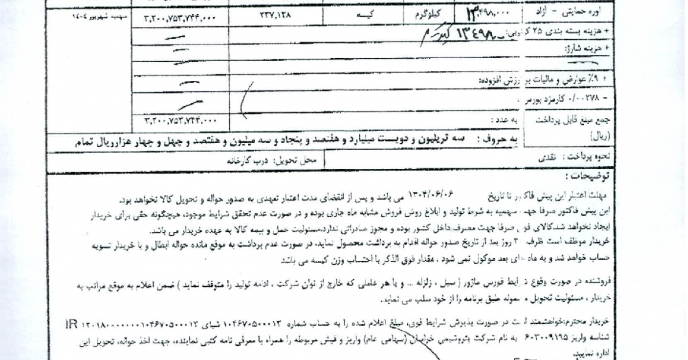 اوره حمایتی - آزاد ۱۳,۴۹۸,۰۰۰ کیلوگرم کیسه ۲۳۷,۱۲۸ ۳,۲۰۰,۷۵۳,۷۴۴,۰۰۰ سهمیه شهریور ۱۴۰۴
+ هزینه بسته بندی ۲۵
+ هزینه شارژ:
+ ۹٪ عوارض و مالیات بر ارزش افزوده:
- ۰/۰۰۲۷۸ کارمزد بورس
جمع مبلغ قابل پرداخت (ریال) به عدد : ۳,۲۰۰,۷۵۳,۷۴۴,۰۰۰
به حروف : سه تریلیون و دویست میلیارد و هفتصد و پنجاه و سه میلیون و هفتصد و چهل و چهار هزارریال تمام
نحوه پرداخت : نقدی محل تحویل: درب کارخانه
توضیحات :
مهلت اعتبار این پیش فاکتور تا تاریخ ۱۴۰۴/۰۶/۰۶ می باشد و پس از انقضای مدت اعتبار تعهدی به صدور حواله و تحویل کالا نخواهد بود.
این پیش فاکتور صرفا جهت سهمیه به شرط تولید و ابلاغ روش فروش مشابه ماه جاری بوده و در صورت عدم تحقق شرایط موجود، هیچگونه حقی برای خریدار
ایجاد نخواهد شد.کالای فوق صرفا جهت مصرف داخل کشور بوده و مجوز صادراتی ندارد.مسئولیت حمل و بیمه کالا به عهده خریدار می باشد.
خریدار موظف است ظرف ۳۰ روز بعد از تاریخ صدور حواله اقدام به برداشت محصول نماید، در صورت عدم برداشت به موقع مانده حواله ابطال و با خریدار تسویه
حساب خواهد شد و به ماه های بعد موکول نمی شود. مقدار فوق الذکر با احتساب وزن کیسه می باشد
فروشنده در صورت وقوع شرایط فورس ماژور ( سیل ، زلزله ... و یا هر عاملی که خارج از توان شرکت ، ادامه تولید را متوقف نماید ) ضمن اعلام به موقع مراتب به
خریدار ، مسئولیت تحویل محموله طبق برنامه را از خود سلب می نماید.
خریدار محترم:خواهشمند است در صورت پذیرش شرایط فوق، مبلغ اعلام شده را به حساب شماره ۱۰۴۶۷۰۵۰۰۰۱۳ شبای IR
شناسه واریز ۶۰۳۰۰۹۱۹۵ به نام شرکت پتروشیمی خراسان (سهامی عام) واریز و فیش مربوطه را همراه با معرفی نامه کتبی نماینده، جهت اخذ حواله، تحویل این
اداره نمایید.